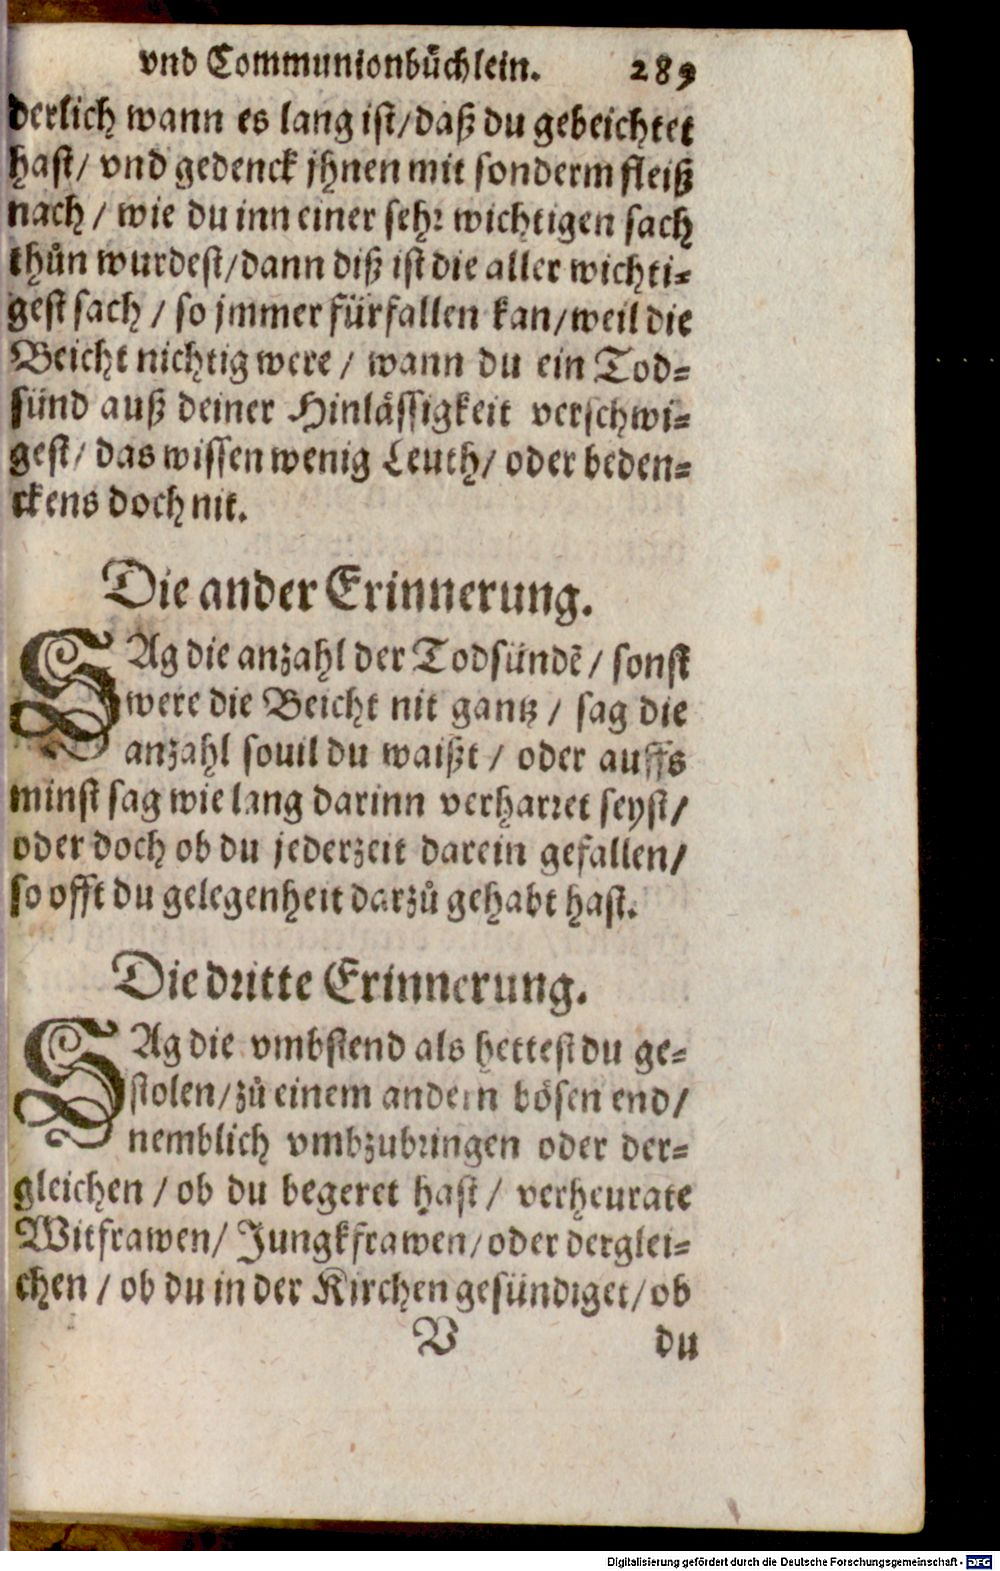 vnd Communionbüchlein. 289
derlich wann es lang ist/ daß du gebeichtet
hast/ vnd gedenck jhnen mit sonderm fleiß
nach / wie du inn einer sehr wichtigen sach
thůn wurdest/ dann diß ist die aller wichti-
gest sach / so jmmer fürfallen kan/ weil die
Beicht nichtig were / wann du ein Tod-
sünd auß deiner Hinlässigkeit verschwi-
gest/ das wissen wenig Leuth/ oder beden-
ckens doch nit.
Die ander Erinnerung.
SAg die anzahl der Todsündē / sonst
were die Beicht nit gantz / sag die
anzahl souil du waißt / oder auffs
minst sag wie lang darinn verharret seyst/
oder doch ob du jederzeit darein gefallen/
so offt du gelegenheit darzů gehabt hast.
Die dritte Erinnerung.
SAg die vmbstend als hettest du ge-
stolen/ zů einem andern bösen end/
nemblich vmbzubringen oder der-
gleichen / ob du begeret hast / verheurate
Witfrawen/ Jungkfrawen/ oder derglei-
chen / ob du in der Kirchen gesündiget/ ob
V du
Digitalisierung gefördert durch die Deutsche Forschungsgemeinschaft - DFG